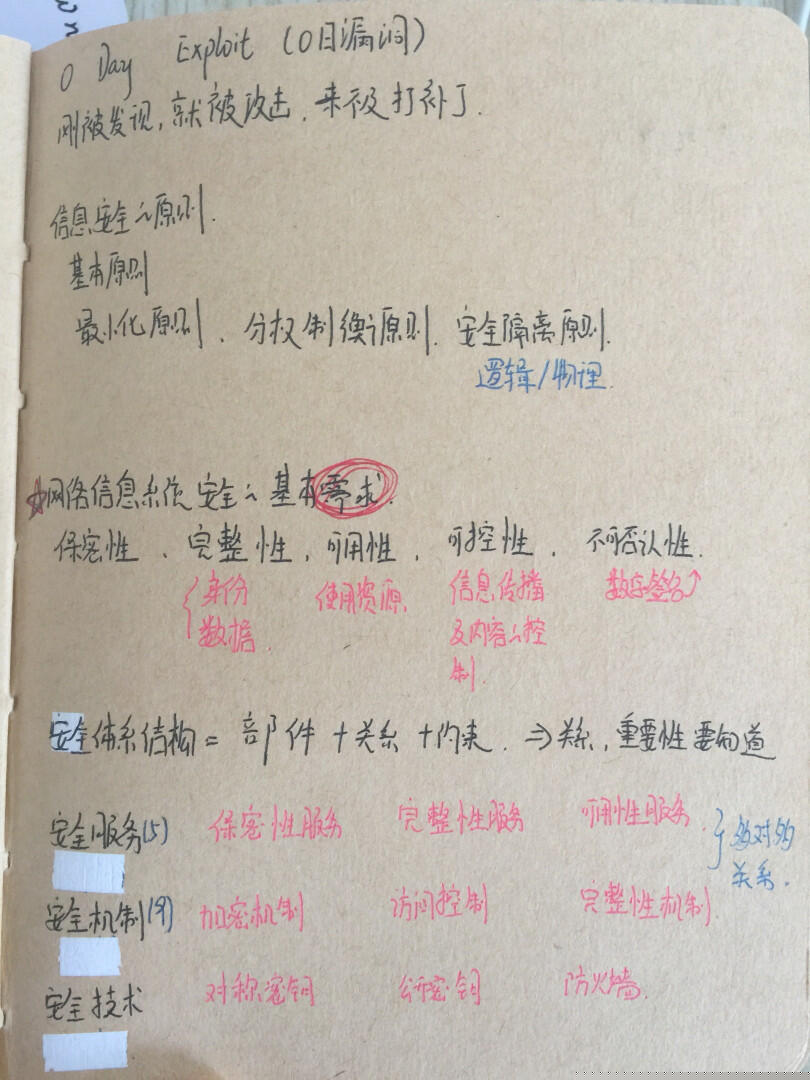 0 Day Exploit (0日漏洞)
刚被发现,就被攻击,来不及打补丁.
信息安全之原则.
基本原则
最小化原则、分权制衡原则.安全隔离原则.
逻辑/物理.
☆网络信息系统安全之基本需求.
保密性、完整性,可用性,可控性,不可否认性.
{身份 使用资源. 信息传播 数字签名↑
数据. 及内容之控
制.
安全体系结构=部件+关系+约束.⇒关系,重要性要知道
安全服务(5) 保密性服务 完整性服务 可用性服务. }多对多
关系.
安全机制(9) 加密机制 访问控制 完整性机制.
安全技术 对称密钥 公开密钥 防火墙.